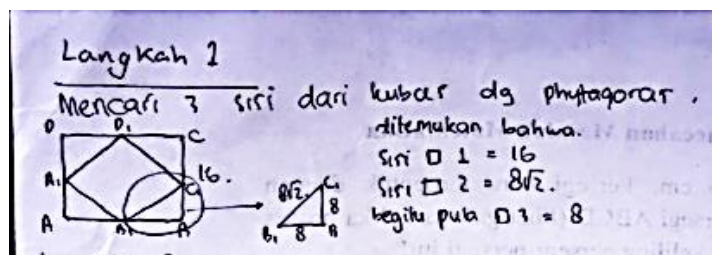 Langkah 1
Mencari 3 sisi dari kubus dg phytagoras.
ditemukan bahwa.
Sisi □ 1 = 16
Sisi □ 2 = 8√2.
begitu pula □ 3 = 8
D D₁ C
A₁ 16.
A B₁
8√2 C₁
8
B₁ 8 B